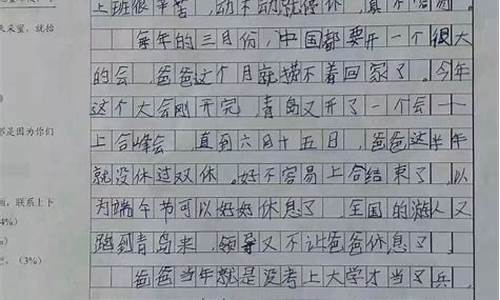 上班很辛苦，动不动就停休，真不容易。
每年的三月份，中国都要开一个很大
的会 爸爸这个月就捞不着回家了。今年
这个大会刚开完，青岛又开了一个会——
上合峰会 直到六月十五日，爸爸这半年
就没休过双休。好不容易上合结束了，以
为端午节可以好好休息了 全国的游人又
跑到青岛来，领导又不让爸爸休息了。
爸爸当年就是没考上大学才当了兵，
是因为你们
联系上下
4%）
（3%）